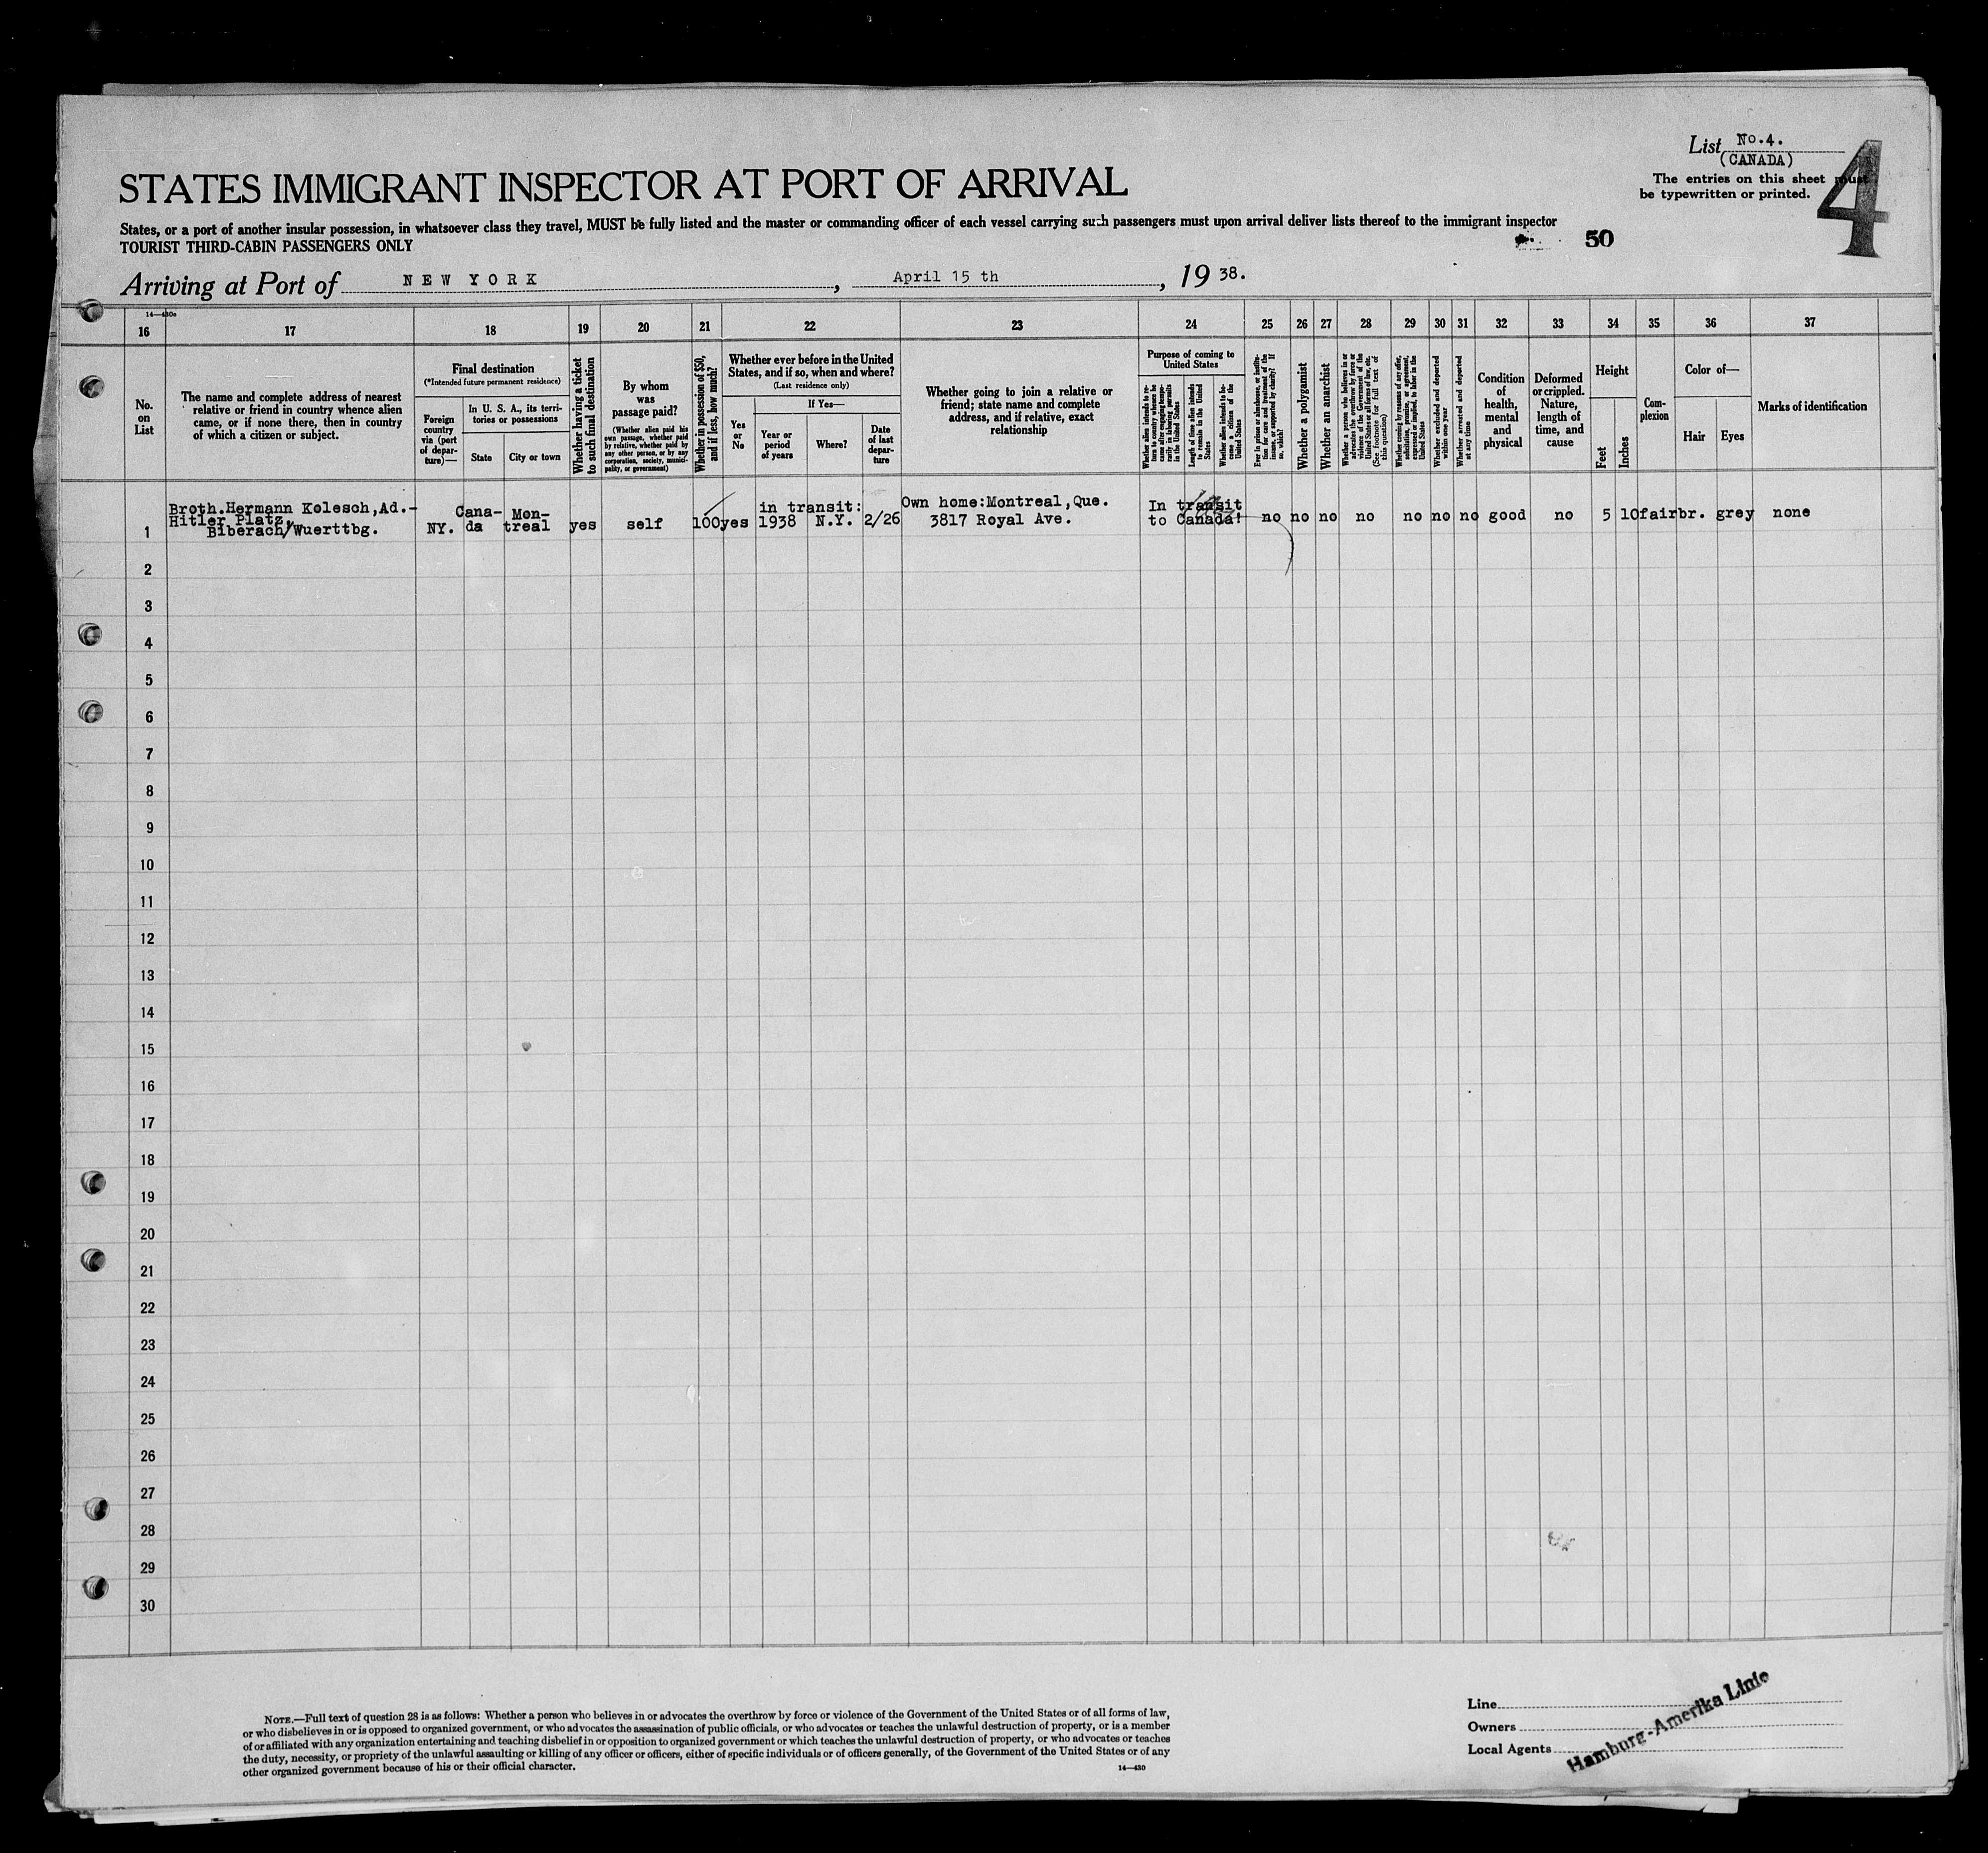 List No.4.
(CANADA)
The entries on this sheet must
be typewritten or printed.
4
STATES IMMIGRANT INSPECTOR AT PORT OF ARRIVAL
States, or a port of another insular possession, in whatsoever class they travel, MUST be fully listed and the master or commanding officer of each vessel carrying such passengers must upon arrival deliver lists thereof to the immigrant inspector
TOURIST THIRD-CABIN PASSENGERS ONLY
50
Arriving at Port of NEW YORK, April 15 th, 19 38.
14—430e
16 17 18 19 20 21 22 23 24 25 26 27 28 29 30 31 32 33 34 35 36 37
No.
on
List
The name and complete address of nearest
relative or friend in country whence alien
came, or if none there, then in country
of which a citizen or subject.
Final destination
(*Intended future permanent residence)
Foreign
country
via (port
of depar-
ture)—
In U. S. A., its terri-
tories or possessions
State
City or town
Whether having a ticket
to such final destination
By whom
was
passage paid?
(Whether alien paid his
own passage, whether paid
by relative, whether paid by
any other person, or by any
corporation, society, munici-
pality, or government)
Whether in possession of $50,
and if less, how much?
Whether ever before in the United
States, and if so, when and where?
(Last residence only)
Yes
or
No
If Yes—
Year or
period
of years
Where?
Date
of last
depar-
ture
Whether going to join a relative or
friend; state name and complete
address, and if relative, exact
relationship
Purpose of coming to
United States
Whether alien intends to re-
turn to country whence he
came after engaging tempo-
rarily in laboring pursuits
in the United States
Length of time alien intends
to remain in the United
States
Whether alien intends to be-
come a citizen of the
United States
Ever in prison or almshouse, or institu-
tion for care and treatment of the
insane, or supported by charity? If
so, which?
Whether a polygamist
Whether an anarchist
Whether a person who believes in or
advocates the overthrow by force or
violence of the Government of the
United States or all forms of law, etc.
(See footnote for full text of
this question)
Whether coming by reasons of any offer,
solicitation, promise, or agreement,
expressed or implied, to labor in the
United States
Whether excluded and deported
within one year
Whether arrested and deported
at any time
Condition
of
health,
mental
and
physical
Deformed
or crippled.
Nature,
length of
time, and
cause
Height
Feet
Inches
Com-
plexion
Color of—
Hair
Eyes
Marks of identification
1
Broth.Hermann Kolesch,Ad.-
Hitler Platz,
Biberach/Wuerttbg.
NY.
Cana-
da
Mon-
treal
yes
self
100
yes
in transit:
1938 N.Y. 2/26
Own home:Montreal,Que.
3817 Royal Ave.
In transit
to Canada!
no no no no no no no good no 5 10 fair br. grey none
2
3
4
5
6
7
8
9
10
11
12
13
14
15
16
17
18
19
20
21
22
23
24
25
26
27
28
29
30
NOTE.—Full text of question 28 is as follows: Whether a person who believes in or advocates the overthrow by force or violence of the Government of the United States or of all forms of law,
or who disbelieves in or is opposed to organized government, or who advocates the assassination of public officials, or who advocates or teaches the unlawful destruction of property, or is a member
of or affiliated with any organization entertaining and teaching disbelief in or opposition to organized government or which teaches the unlawful destruction of property, or who advocates or teaches
the duty, necessity, or propriety of the unlawful assaulting or killing of any officer or officers, either of specific individuals or of officers generally, of the Government of the United States or of any
other organized government because of his or their official character.
14—430
Line
Owners
Local Agents
Hamburg-Amerika Linie